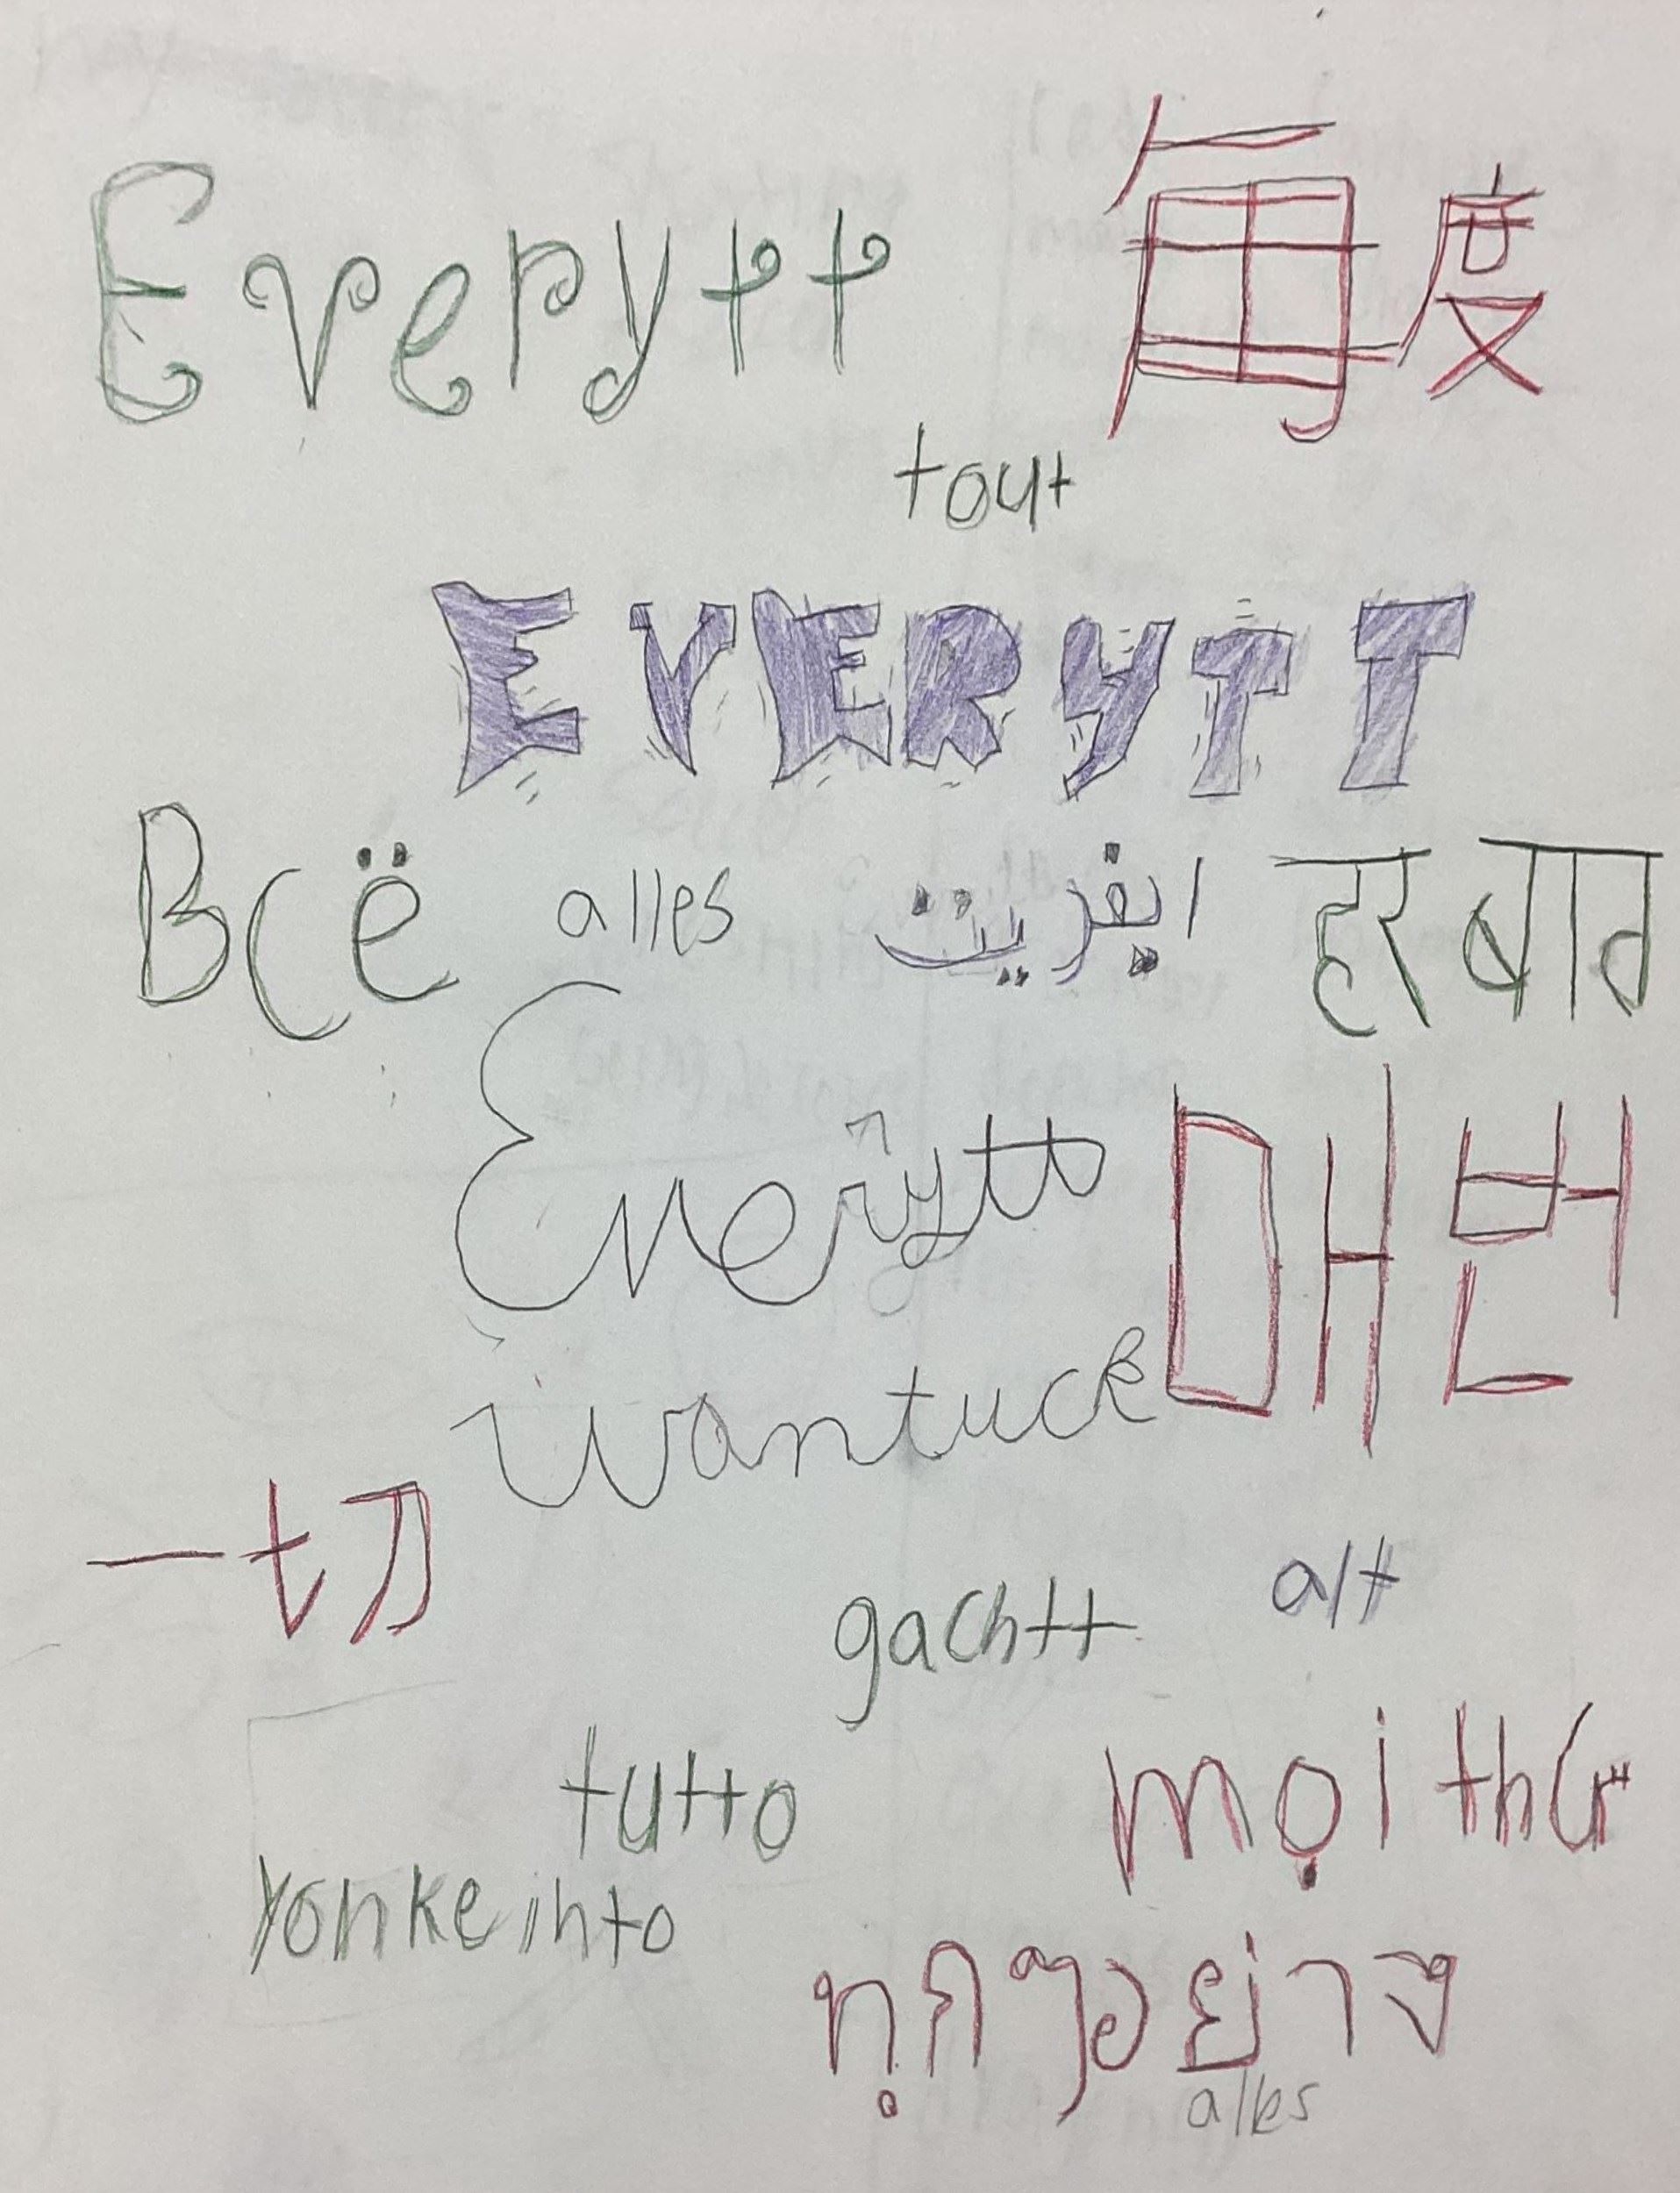 Everytt 毎度
tout
EVERYTT
Всё alles ايفريت हर बार
Everytt 매번
Wantuck
一切
gachtt alt
tutto mọi thứ
yonke into
ทุกๆอย่าง
alles